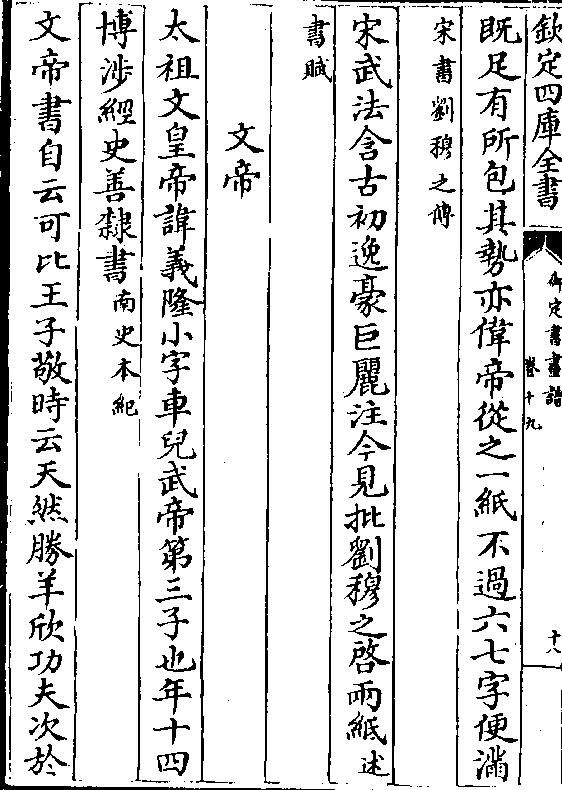 欽定四庫全書
御定書畫譜
卷十九
十八
既足有所包其勢亦偉帝從之一紙不過六七字便滿
宋書劉穆之傳
宋武法含古初逸豪巨麗注今見批劉穆之啓兩紙述
書賦
文帝
太祖文皇帝諱義隆小字車兒武帝第三子也年十四
博涉經史善隸書南史本紀
文帝書自云可比王子敬時云天然勝羊欣功夫次於